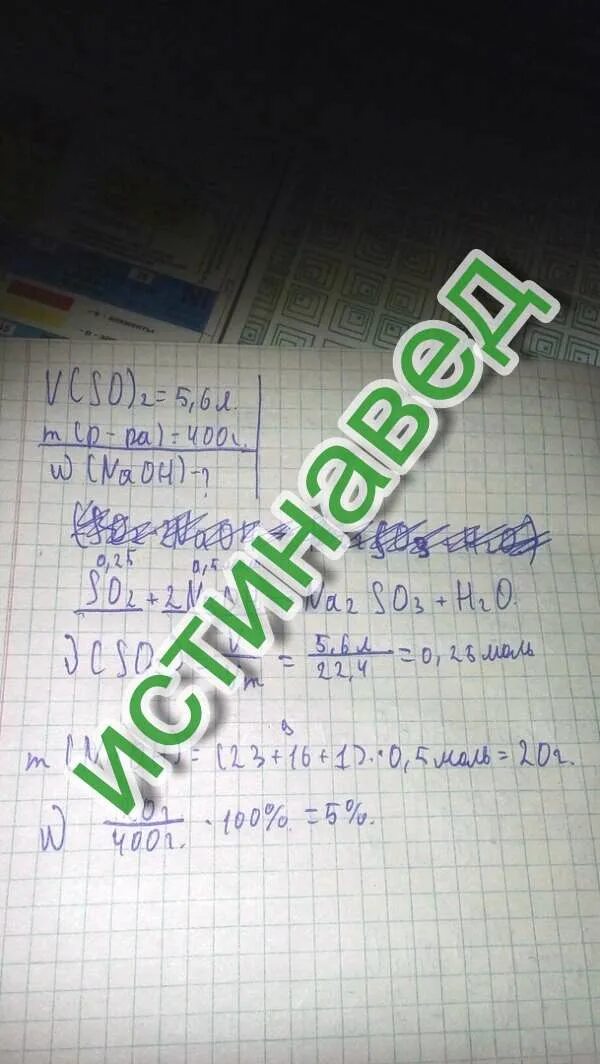 V(SO)₂ = 5,6 л.
m(р-ра) = 400 г.
W(NaOH) - ?
0,25 0,5
SO₂ + 2N Na₂SO₃ + H₂O
= 5,6 л / 22,4 = 0,25 моль
m = (23 + 16 + 1) · 0,5 моль = 20 г.
W 0г / 400 г. · 100% = 5%.
ИСТИНАВЕД